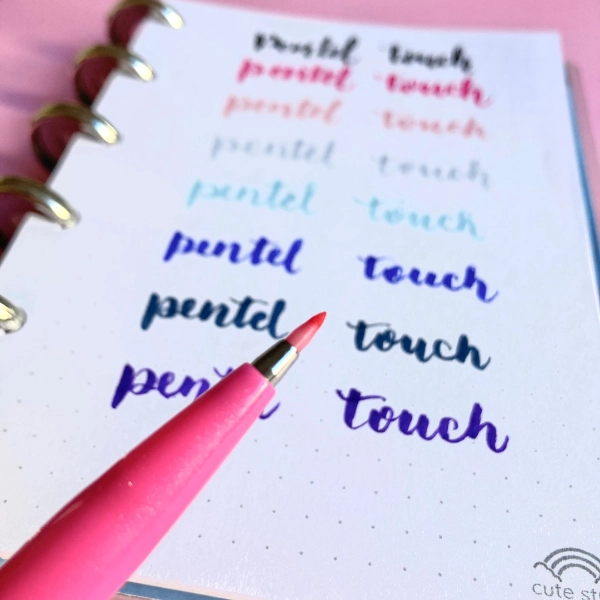 pentel touch
pentel touch
pentel touch
pentel touch
pentel touch
pentel touch
pentel touch
touch
cute